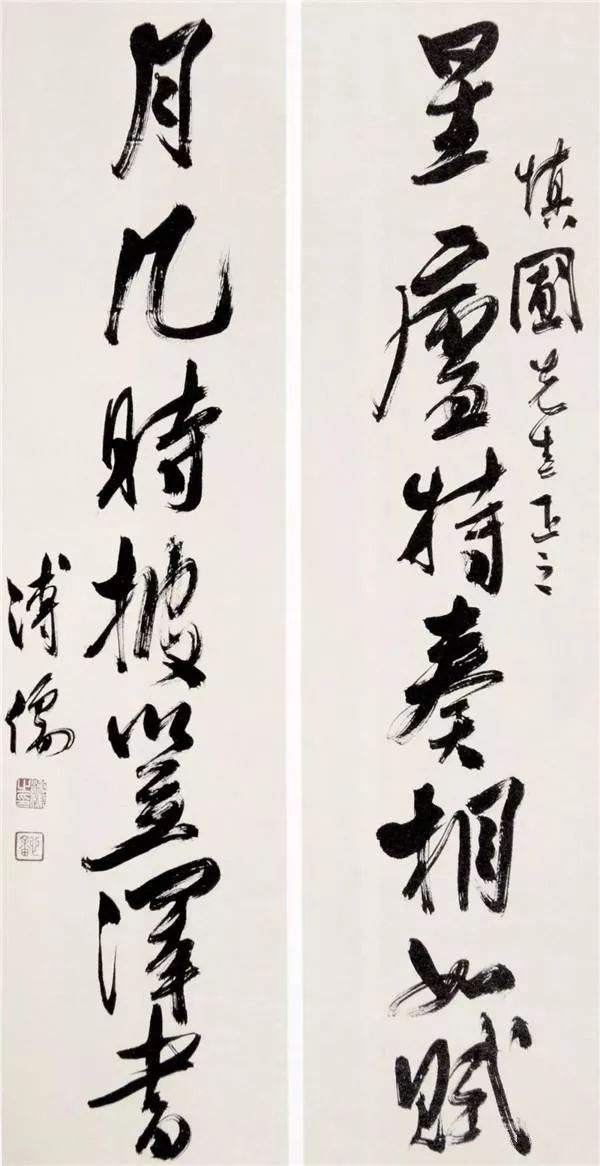 慎圃先生正之
星廬特奏相如賦
月几時披笠澤書
溥儒